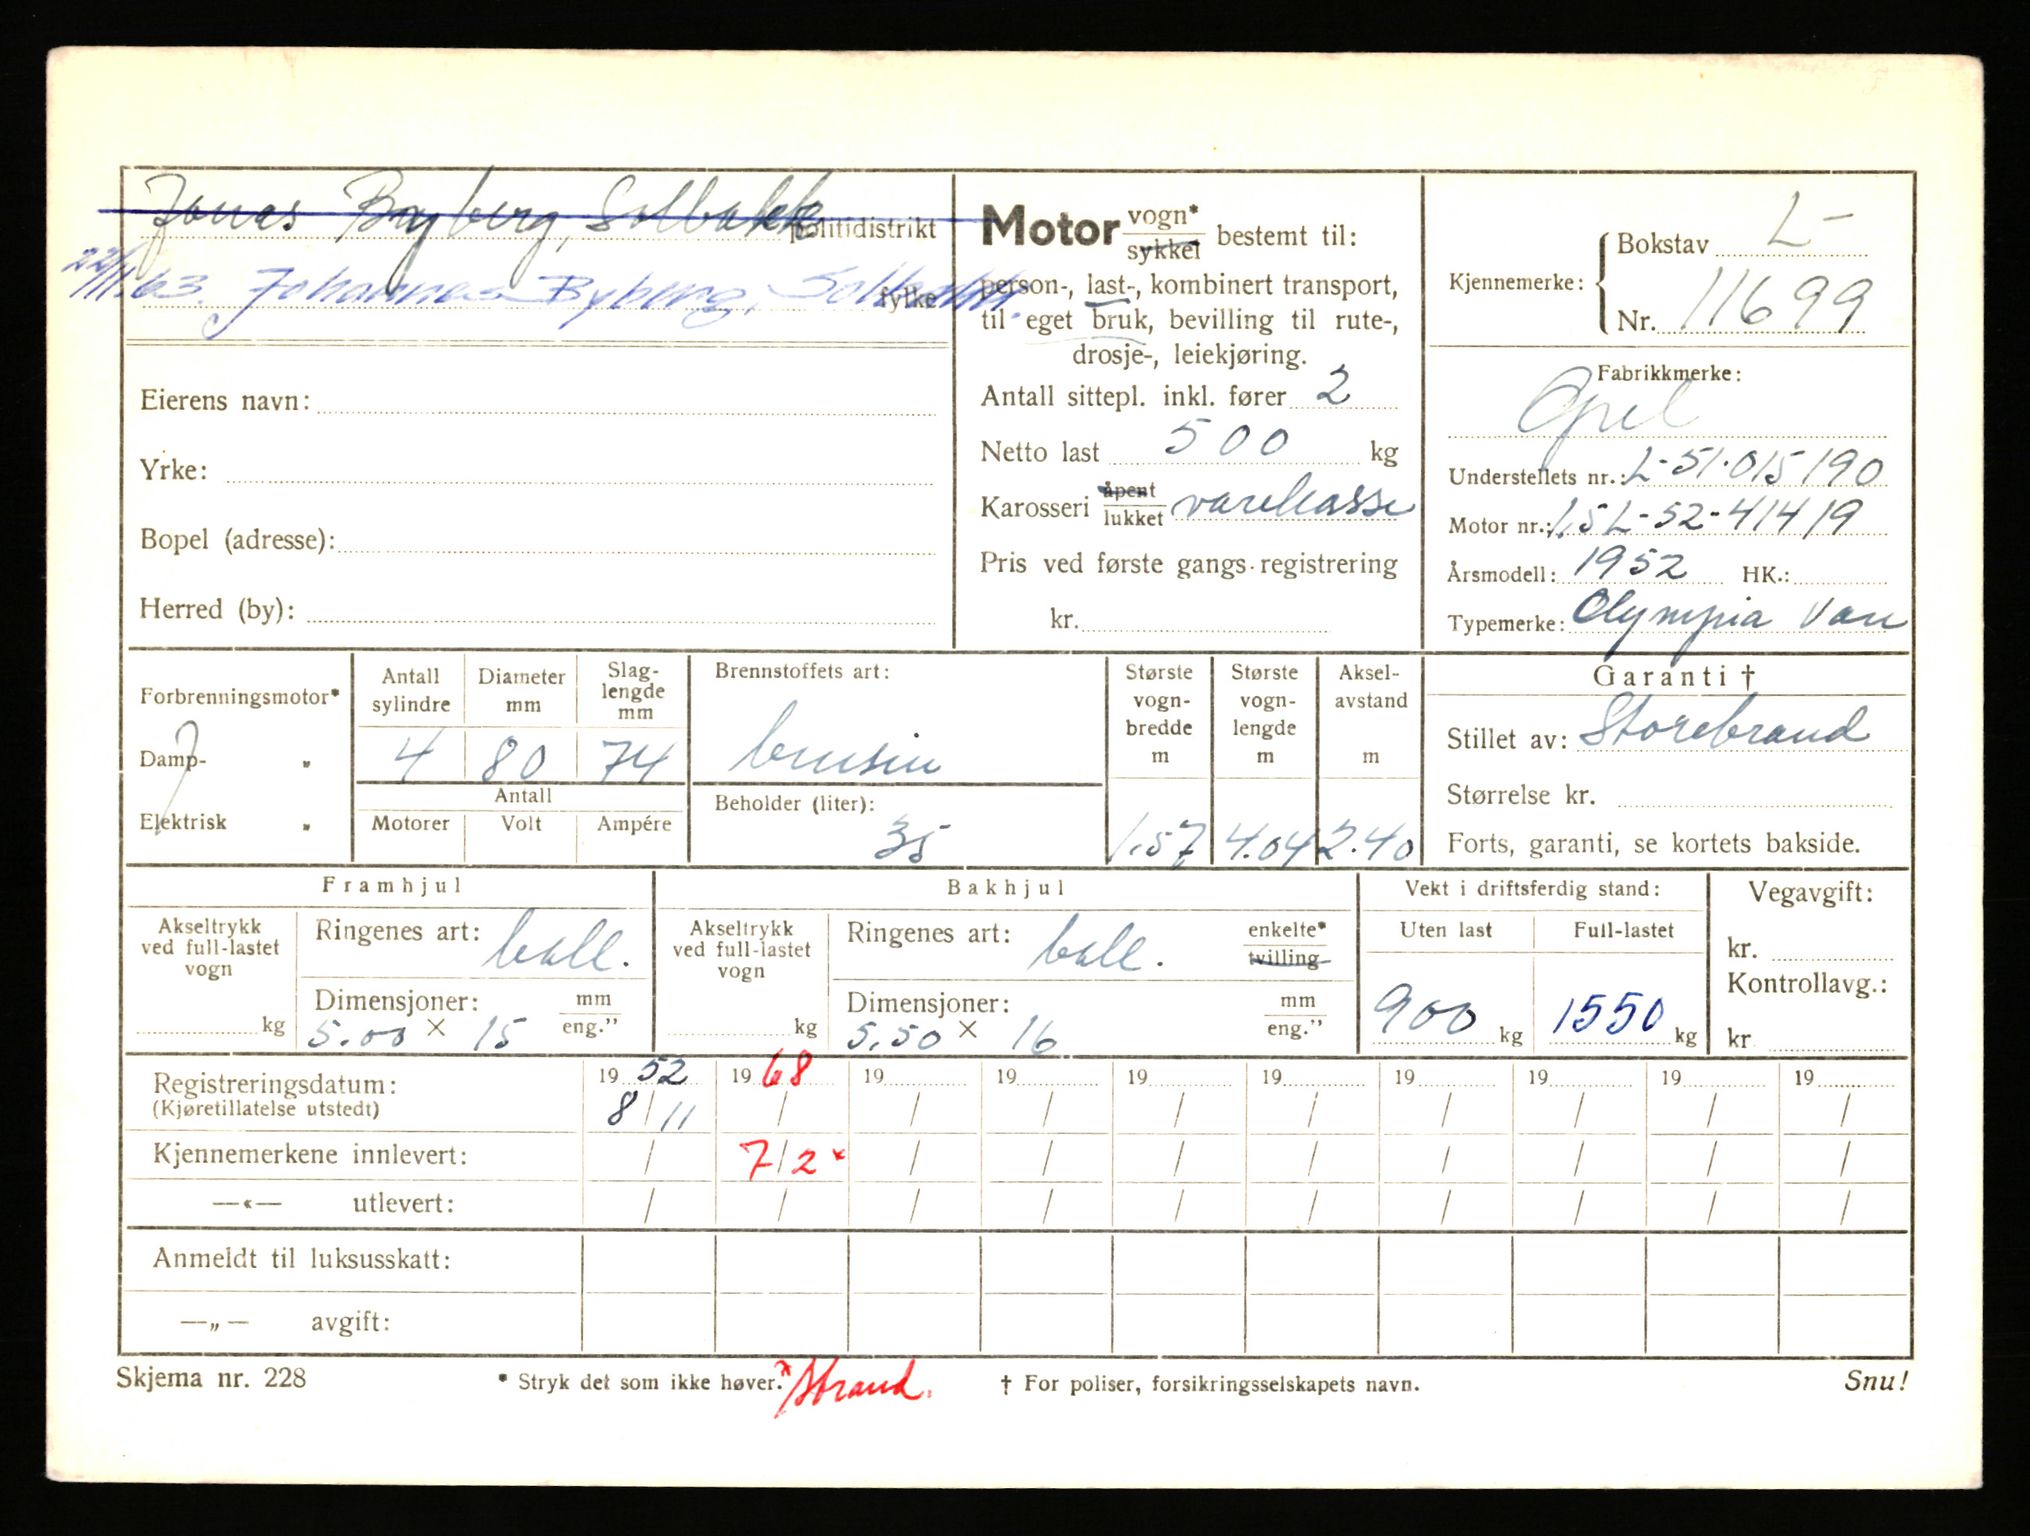 Jonas Byberg, Solbakk politidistrikt
22/11.63. Johannes Byberg, Solbakk. fylke
Eierens navn:
Yrke:
Bopel (adresse):
Herred (by):
Motor vogn* sykkel bestemt til:
person-, last-, kombinert transport,
til eget bruk, bevilling til rute-,
drosje-, leiekjøring.
Antall sittepl. inkl. fører 2
Netto last 500 kg
Karosseri åpent lukket varekasse
Pris ved første gangs registrering
kr.
Kjennemerke: Bokstav L-
Nr. 11699
Fabrikkmerke:
Opel
Understellets nr.: L-51.015190
Motor nr.: 1,5L-52-41419
Årsmodell: 1952 HK.:
Typemerke: Olympia Van
Forbrenningsmotor*
Damp- „
Elektrisk „
Antall sylindre 4
Diameter mm 80
Slag-lengde mm 74
Antall
Motorer Volt Ampére
Brennstoffets art:
bensin
Beholder (liter):
35
Største vogn-bredde m 1.57
Største vogn-lengde m 4.04
Aksel-avstand m 2.40
Garanti †
Stillet av: Storebrand
Størrelse kr.
Forts, garanti, se kortets bakside.
Framhjul
Akseltrykk ved full-lastet vogn
kg
Ringenes art: ball.
Dimensjoner: mm eng.”
5.00 × 15
Bakhjul
Akseltrykk ved full-lastet vogn
kg
Ringenes art: ball. enkelte* tvilling
Dimensjoner: mm eng.”
5.50 × 16
Vekt i driftsferdig stand:
Uten last Full-lastet
900 kg 1550 kg
Vegavgift:
kr.
Kontrollavg.:
kr
Registreringsdatum: 19 52 19 68 19 19 19 19 19 19 19 19
(Kjøretillatelse utstedt) 8/11 / / / / / / / / /
Kjennemerkene innlevert: / 7/2 * / / / / / / / /
—«— utlevert: / / / / / / / / / /
Anmeldt til luksusskatt:
—„— avgift:
Skjema nr. 228 * Stryk det som ikke høver. * Strand. † For poliser, forsikringsselskapets navn. Snu!